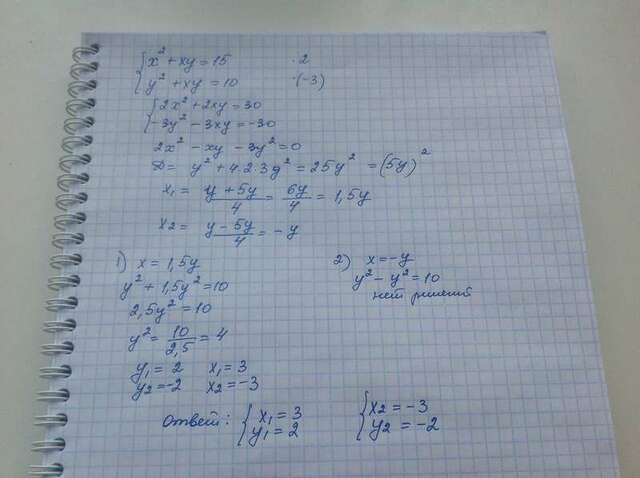 {x² + xy = 15 ·2
{y² + xy = 10 ·(-3)
{2x² + 2xy = 30
{-3y² - 3xy = -30
2x² - xy - 3y² = 0
D = y² + 4·2·3y² = 25y² = (5y)²
x₁ = (y + 5y)/4 = 6y/4 = 1,5y
x₂ = (y - 5y)/4 = -y
1) x = 1,5y
y² + 1,5y² = 10
2,5y² = 10
y² = 10/2,5 = 4
y₁ = 2 x₁ = 3
y₂ = -2 x₂ = -3
2) x = -y
y² - y² = 10
нет решений
Ответ: {x₁ = 3
{y₁ = 2
{x₂ = -3
{y₂ = -2